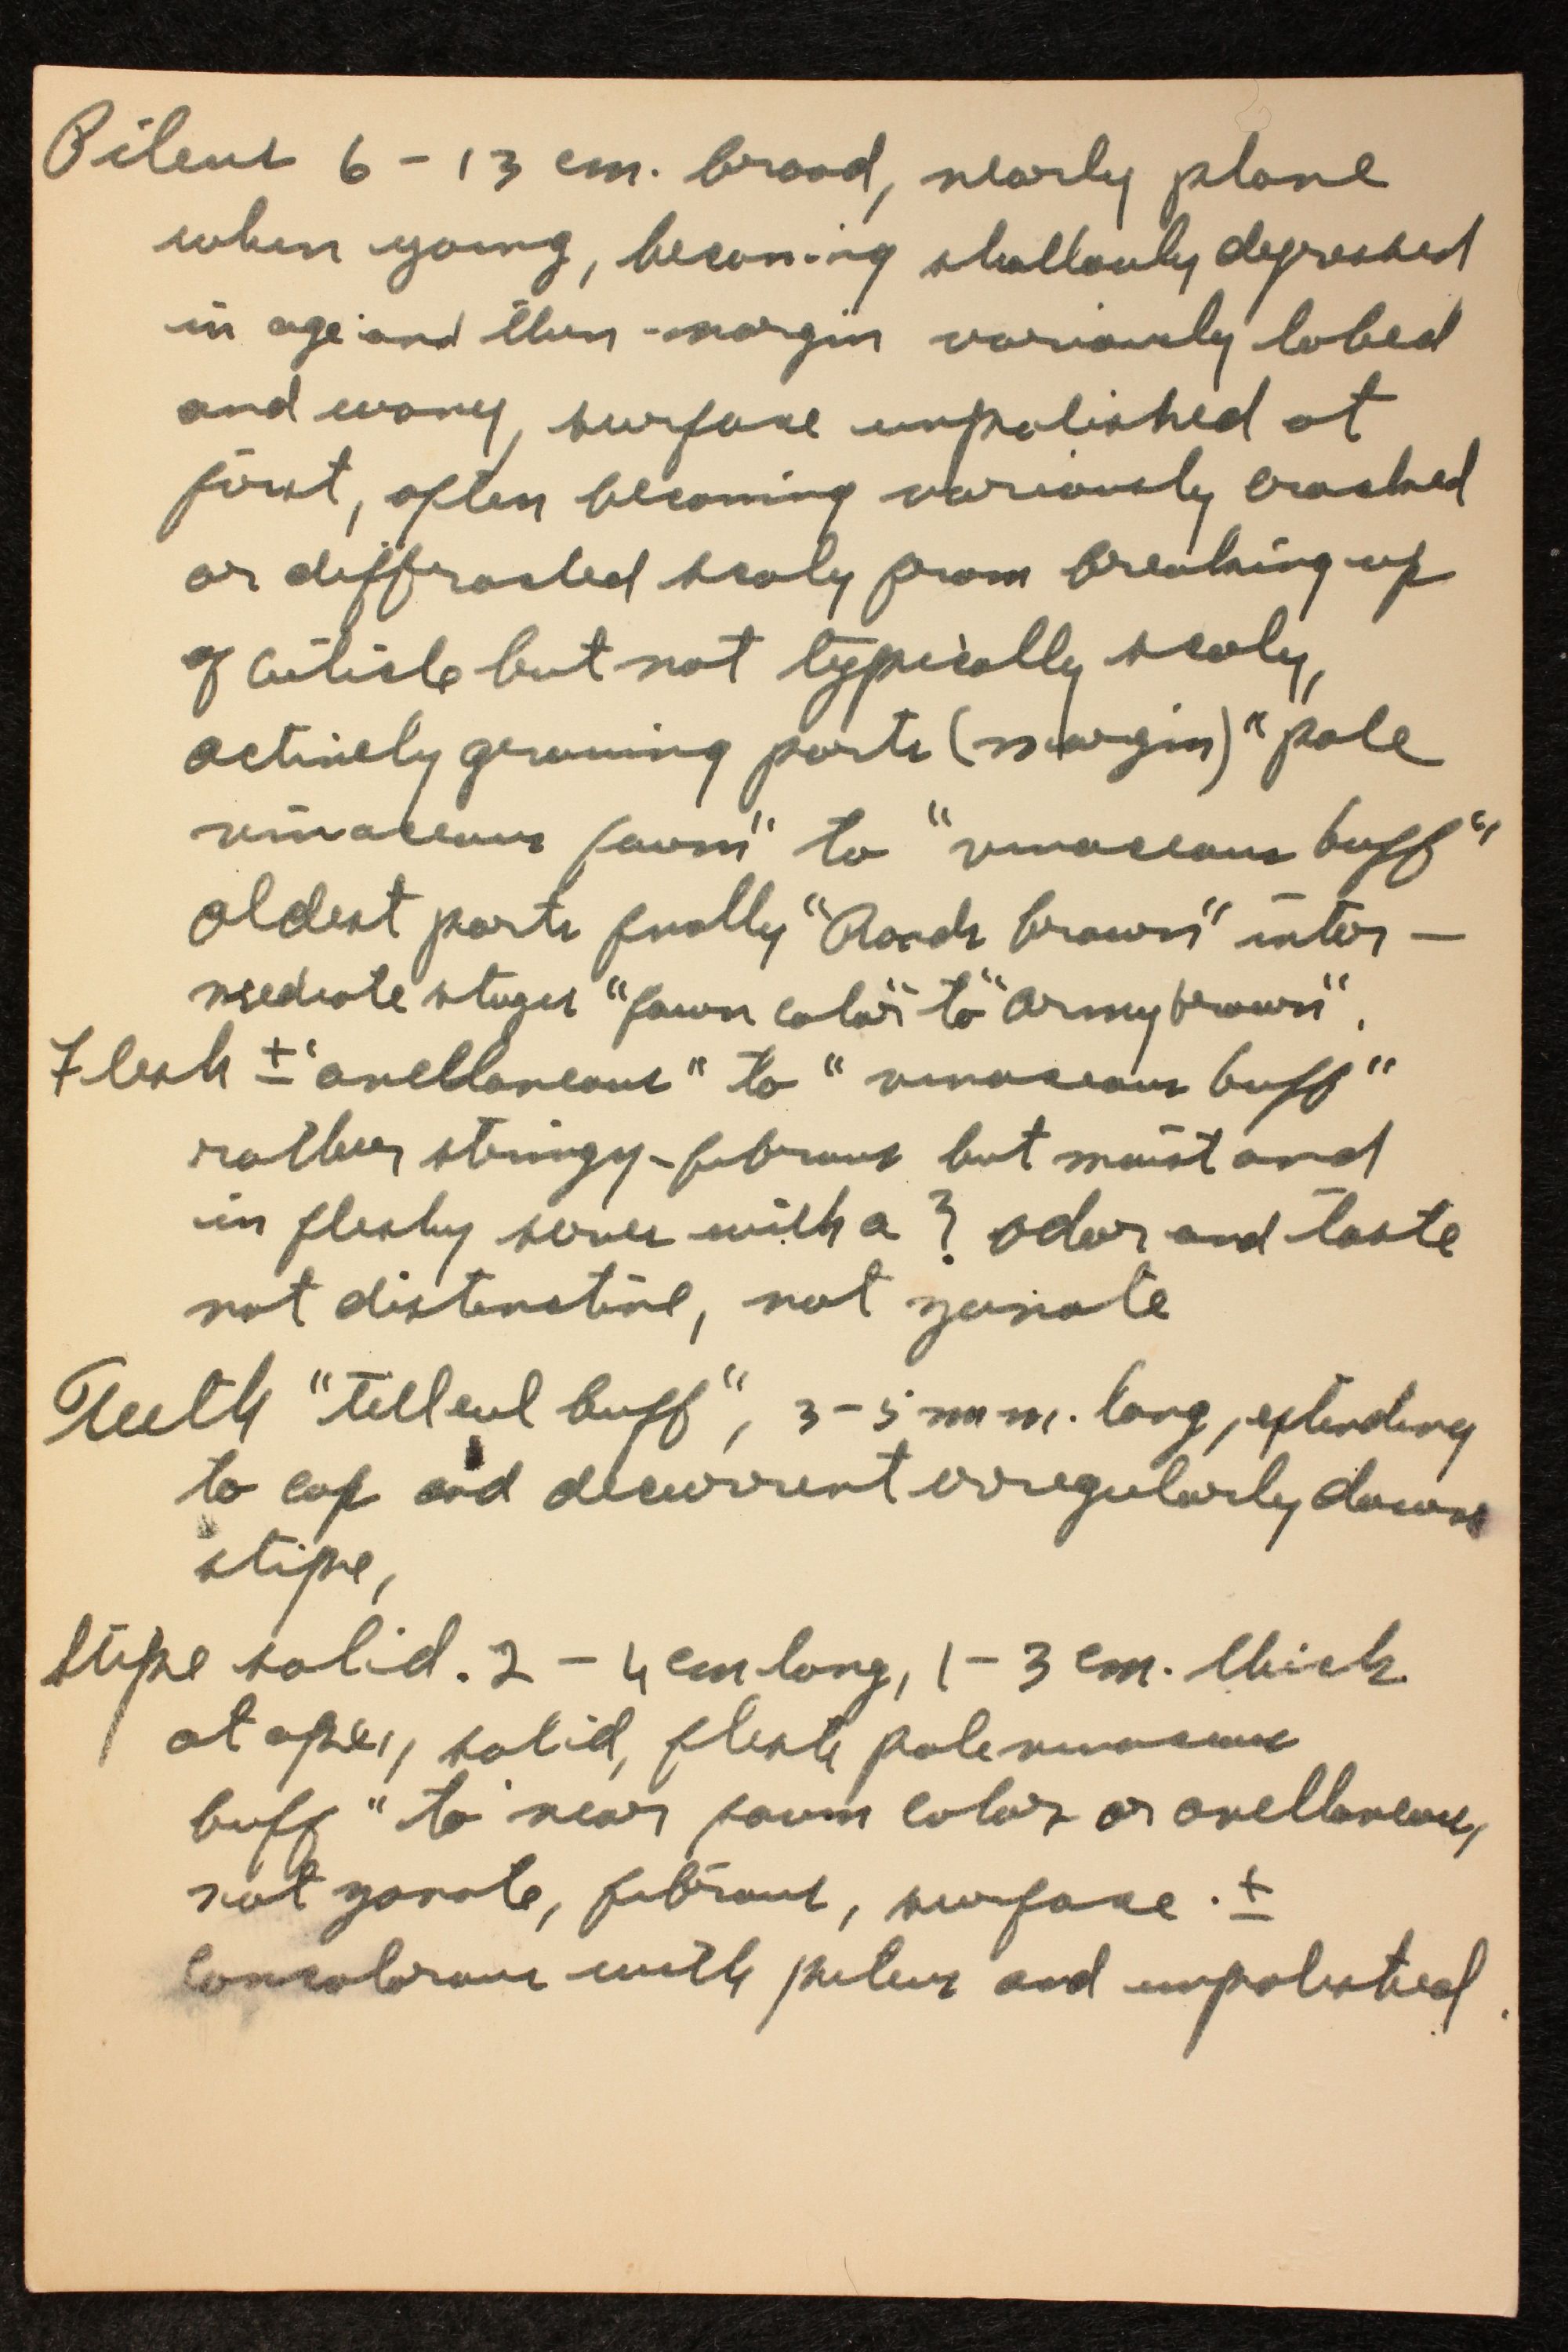 Pileus 6 - 13 cm. broad, nearly plane
when young, becoming shallowly depressed
in age and then margin variously lobed
and wavy, surface unpolished at
first, often becoming variously cracked
or diffracted scaly from breaking up
of cuticle but not typically scaly,
actively growing parts (margin) "pale
vinaceous fawn" to "vinaceous buff"
oldest parts finally "Roods brown" inter-
mediate stages "fawn color" to "army brown".
Flesh ± "avellaneous" to "vinaceous buff"
rather stringy-fibrous but moist and
in fleshy series with a ? odor and taste
not distinctive, not zonate
Teeth "tilleul buff", 3-5 mm. long, extending
to cap and decurrent irregularly down
stipe,
Stipe solid. 2 - 4 cm long, 1 - 3 cm. thick
at apex, solid, flesh pale vinaceous
buff" to near fawn color or avellaneous,
not zonate, fibrous, surface ±
concolorous with pileus and unpolished.